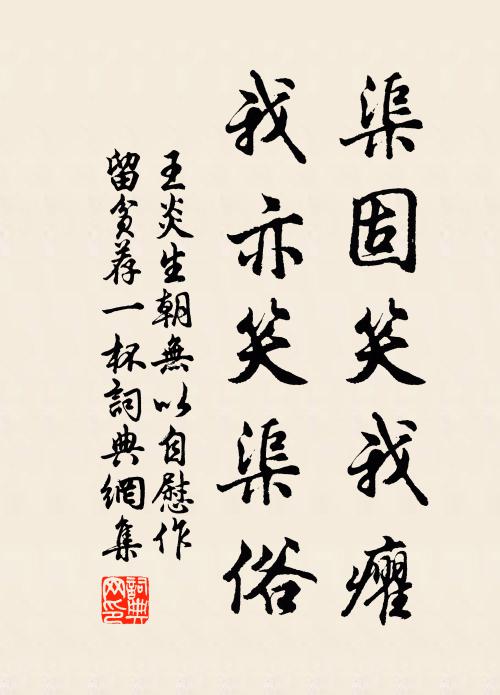 渠固笑我癯
我亦笑渠俗
王炎生朝無以自慰作
留貧荐一杯詞典網集
詞典网印